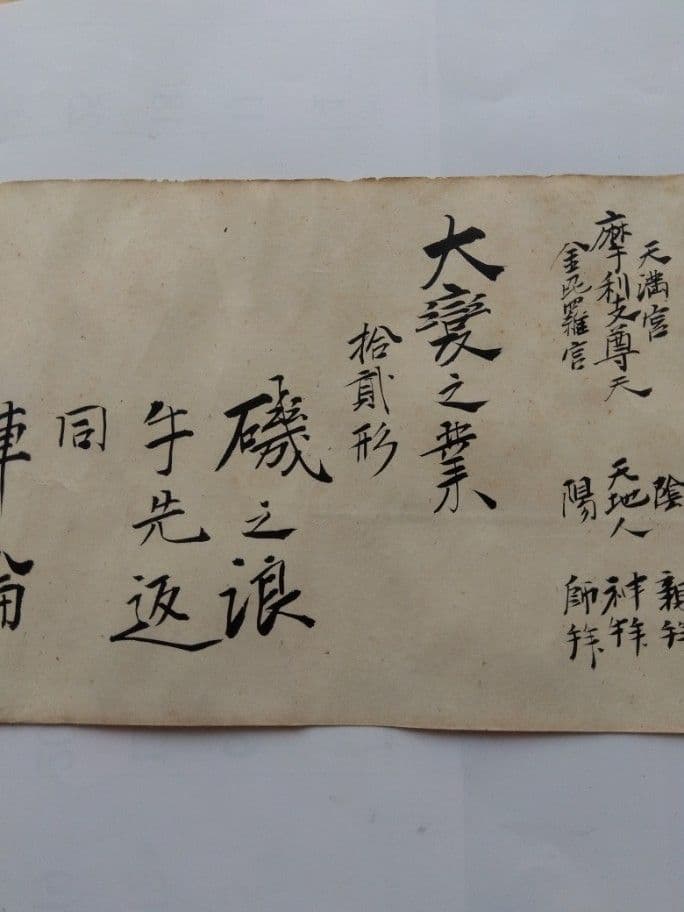 天満宮
摩利支尊天
金毘羅宮
陰
天地人
陽
神
師
大變之業
拾貳形
磯之浪
手先返
同